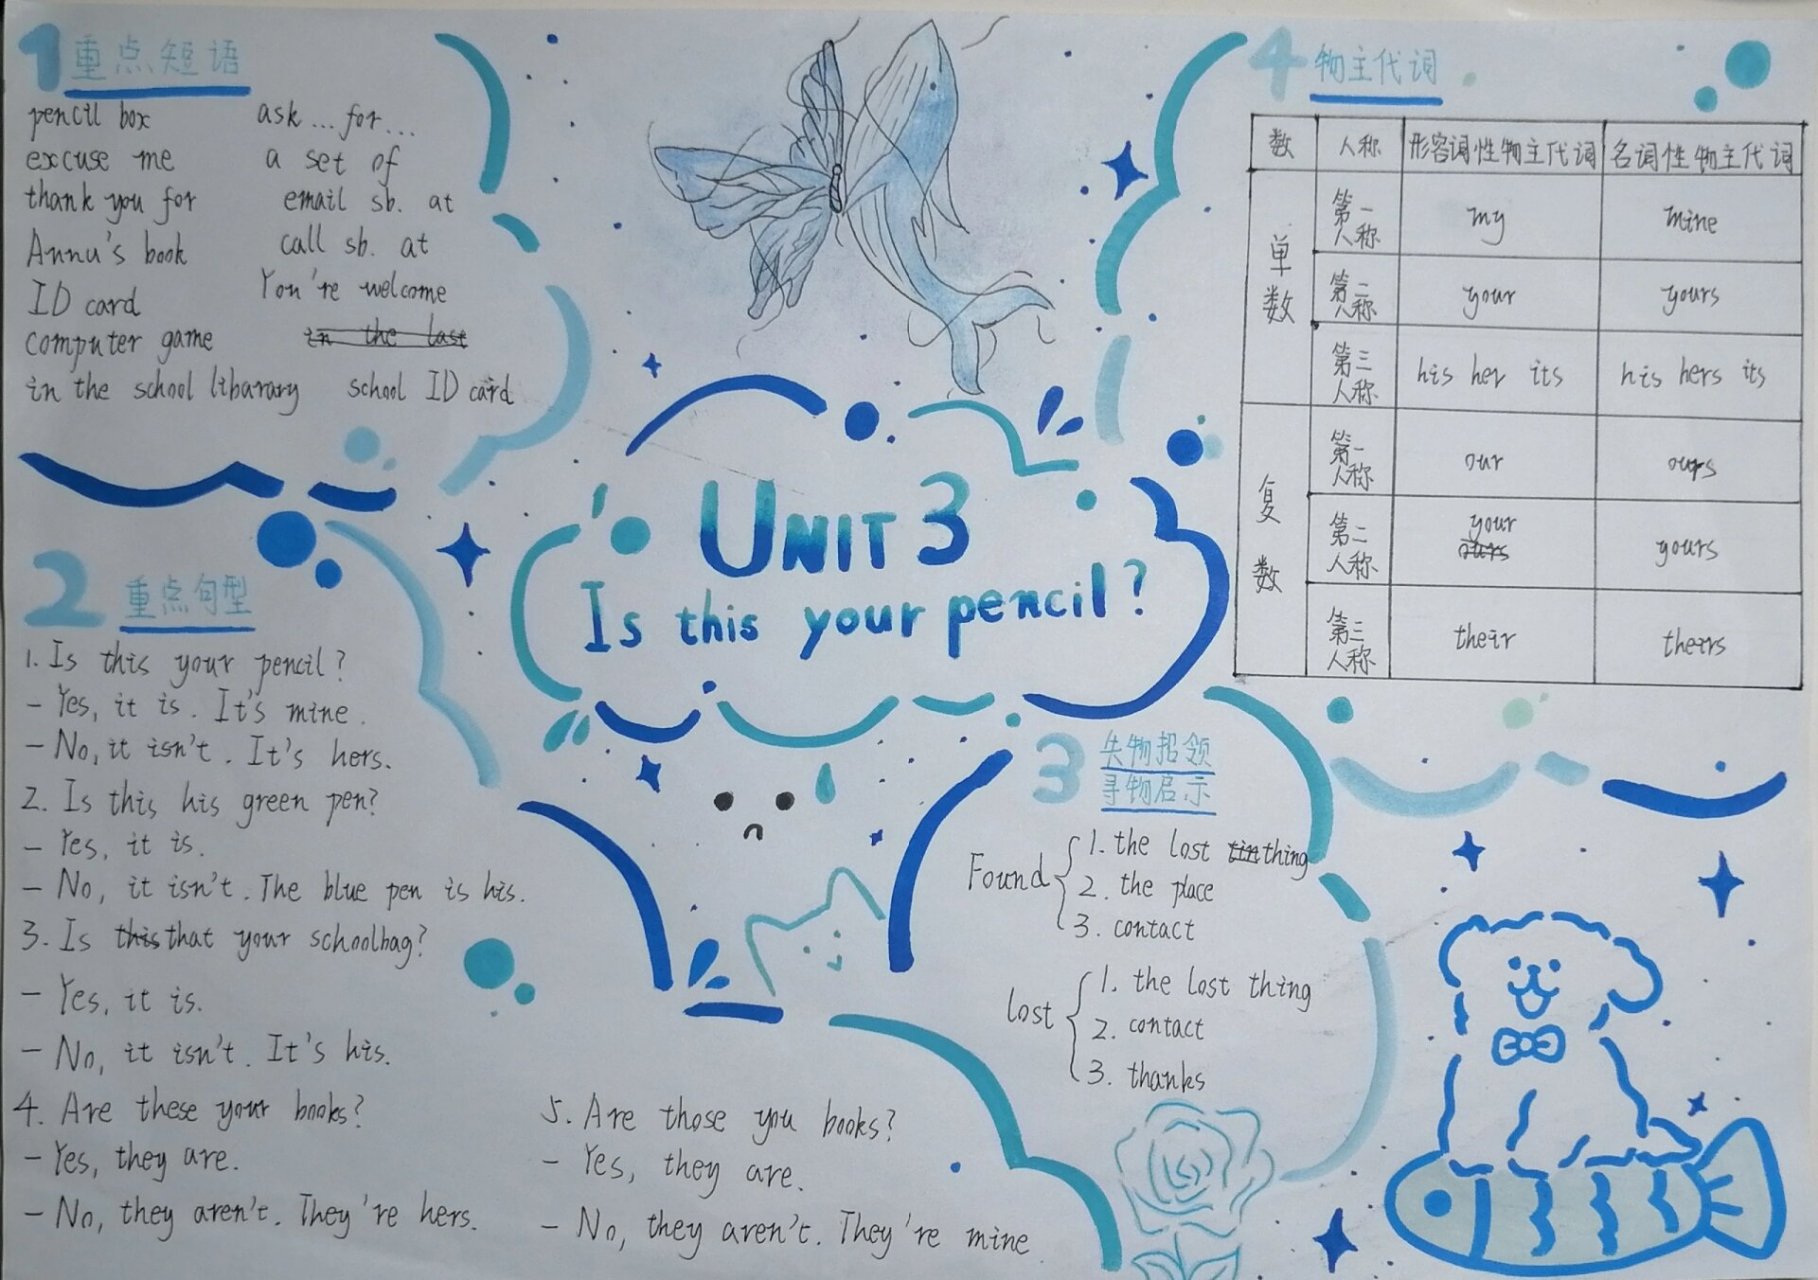 1 重点短语
pencil box ask...for...
excuse me a set of
thank you for email sb. at
Annu's book call sb. at
ID card You're welcome
computer game in the last
in the school libarary school ID card
UNIT 3
Is this your pencil?
2 重点句型
1. Is this your pencil?
- Yes, it is. It's mine.
- No, it isn't. It's hers.
2. Is this his green pen?
- Yes, it is.
- No, it isn't. The blue pen is his.
3. Is this that your schoolbag?
- Yes, it is.
- No, it isn't. It's his.
4. Are these your books?
- Yes, they are.
- No, they aren't. They're hers.
5. Are those you books?
- Yes, they are.
- No, they aren't. They're mine
3 失物招领
寻物启示
Found
1. the lost tin thing
2. the place
3. contact
lost
1. the lost thing
2. contact
3. thanks
4 物主代词
数 人称 形容词性物主代词 名词性物主代词
单数
第一人称 my mine
第二人称 your yours
第三人称 his her its his hers its
复数
第一人称 our ours
第二人称 your ours yours
第三人称 their theirs